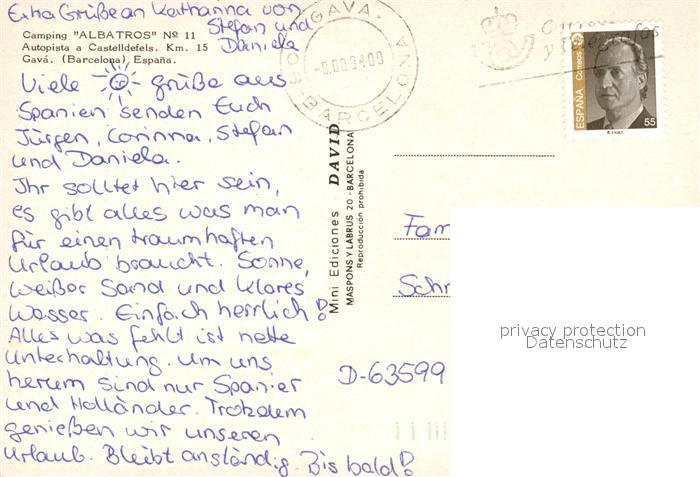 Extra Grüße an Katharina von
Stefan und
Daniela
Camping "ALBATROS" Nº 11
Autopista a Castelldefels. Km. 15
Gavá. (Barcelona) España.
Viele grüße aus
Spanien senden Euch
Jürgen, Corinna, Stefan
und Daniela.
Ihr solltet hier sein,
es gibt alles was man
für einen traumhaften
Urlaub braucht. Sonne,
weißer Sand und klares
Wasser. Einfach herrlich!
Alles was fehlt ist nette
Unterhaltung. Um uns
herum sind nur Spanier
und Holländer. Trotzdem
genießen wir unseren
Urlaub. Bleibt anständig. Bis bald!
Mini Ediciones DAVID
MASPONS Y LABRUS 20 - BARCELONA
Reproducción prohibida
GAVA.
BARCELONA
ESPAÑA Correos
55
Fam
Schr
D-63599
privacy protection
Datenschutz